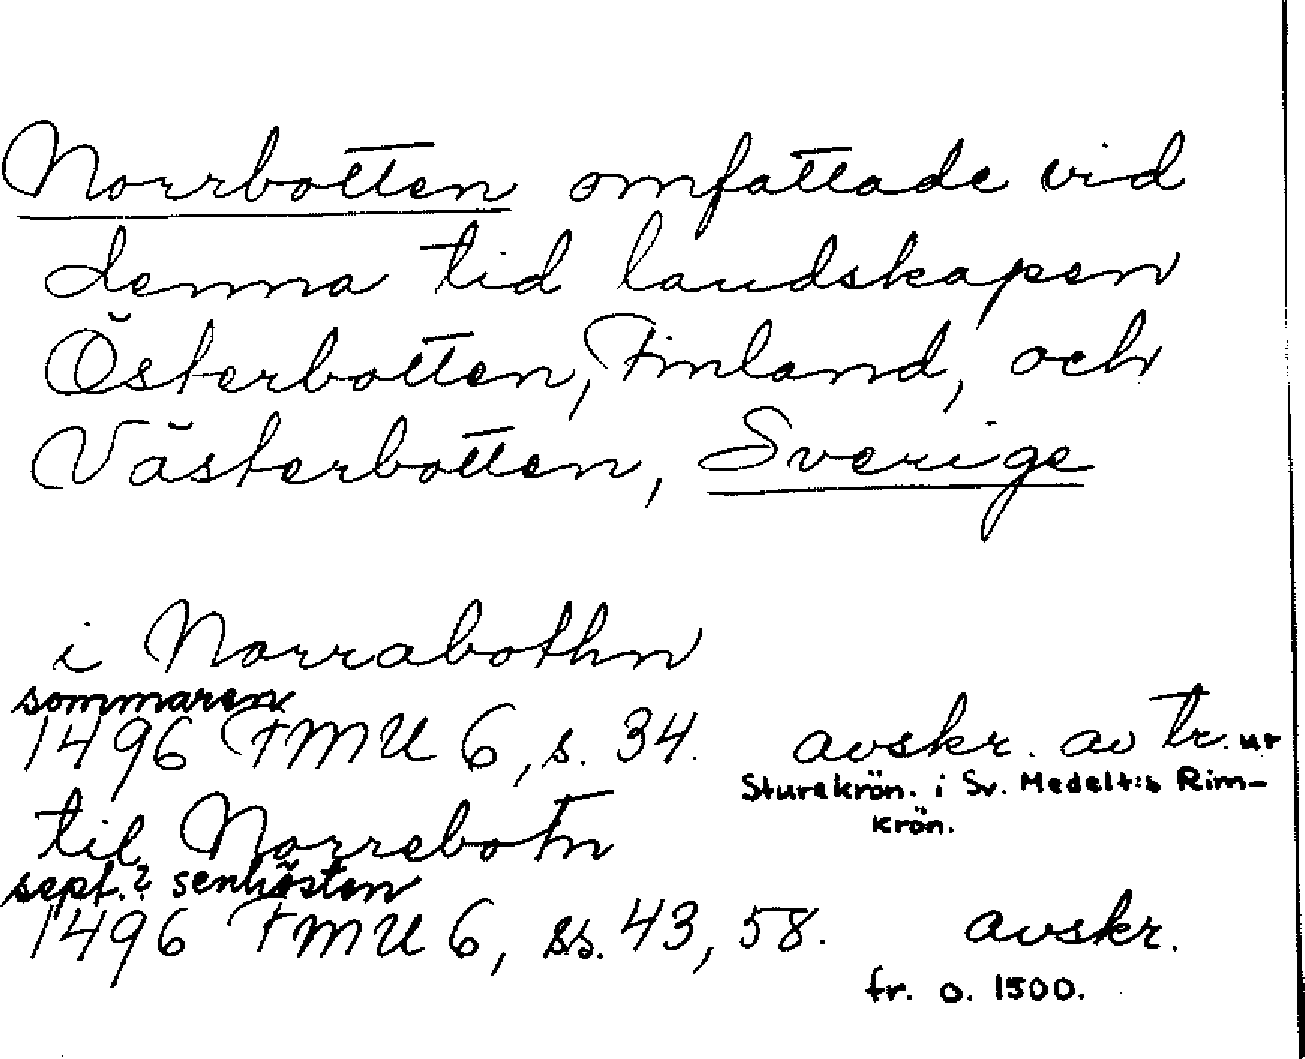 Norrbotten omfattade vid
denna tid landskapen
Österbotten, Finland, och
Västerbotten, Sverige
i Norrabothn
sommaren
1496 FMU 6, s. 34. avskr. av tr. ur
Sturekrön. i Sv. Medelt:s Rim-
krön.
til Norrebotn
sept.? senhösten
1496 FMU 6, ss. 43, 58. avskr.
fr. o. 1500.